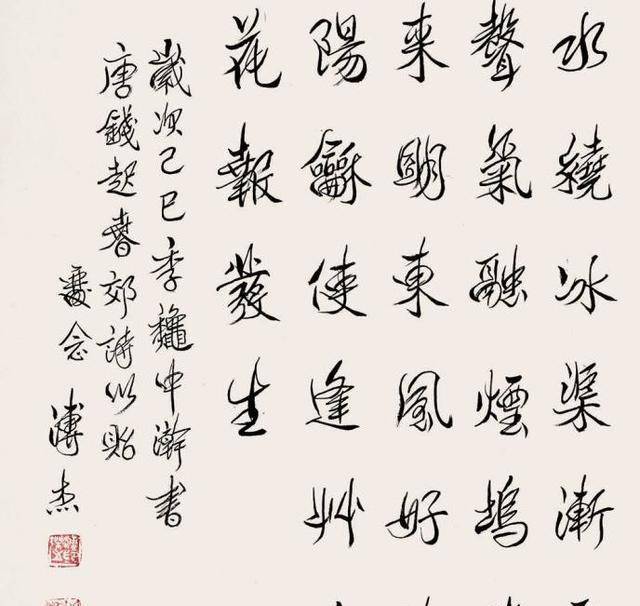 水繞冰渠漸
聲氣融煙塢
来明東風好
陽龢使逢艸
花報發生
歲次己巳季龝中澣書
唐錢起春郊詩以貽
念
溥杰